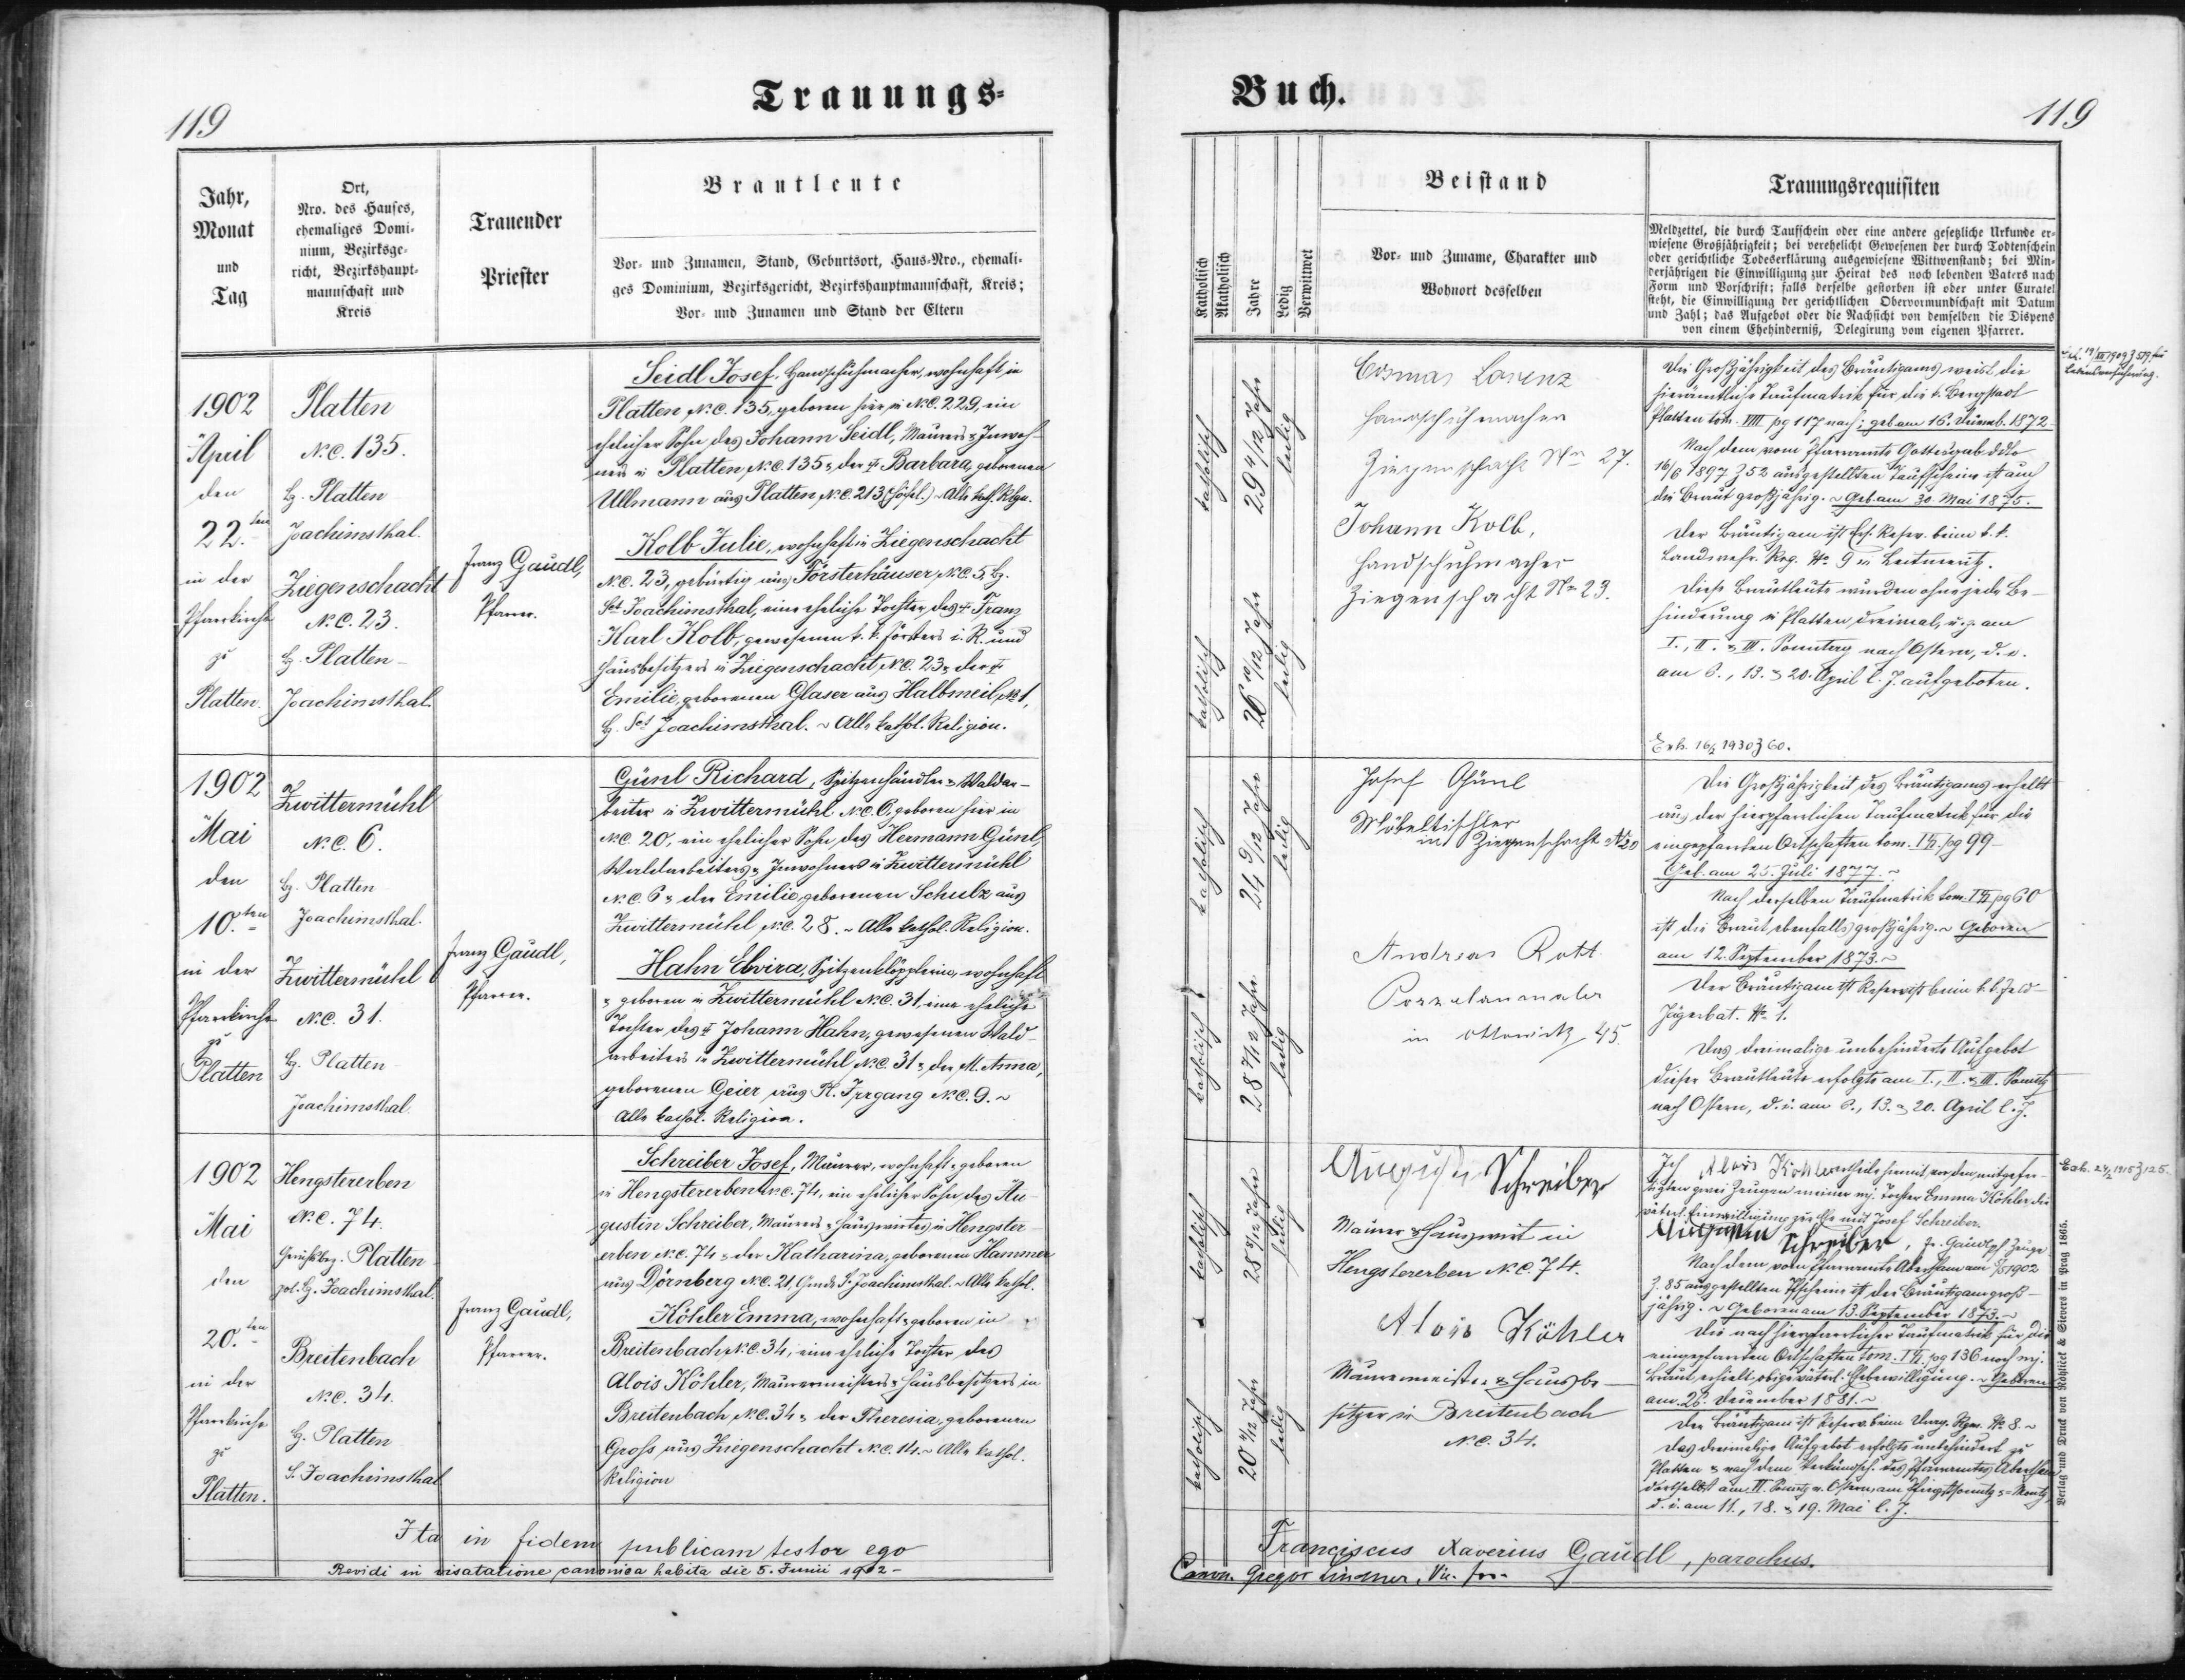 Trauungs-
119
Jahr,
Monat
und
Tag
Ort,
Nro. des Hauses,
ehemaliges Domi-
nium, Bezirksge-
richt, Bezirkshaupt-
mannschaft und
Kreis
Trauender
Priester
Brautleute
Vor- und Zunamen, Stand, Geburtsort, Haus-Nro., ehemali-
ges Dominium, Bezirksgericht, Bezirkshauptmannschaft, Kreis;
Vor- und Zunamen und Stand der Eltern
1902
April
den
22.ten
in der
Pfarrkirche
zu
Platten.
Platten
N.C. 135.
Bz. Platten
Joachimsthal.
Ziegenschacht
N.C. 23.
Bz. Platten
Joachimsthal.
Franz Gaudl,
Pfarrer.
Seidl Josef, Handschuhmacher, wohnhaft in
Platten N.C. 135, geboren hier in N.C. 229, ein
ehelicher Sohn des Johann Seidl, Maurers & Inwoh-
ners in Platten N.C. 135 & der † Barbara, geborenen
Ullmann aus Platten N.C. 213 ~ Alle kath. Relgn.
Kolb Julie, wohnhaft in Ziegenschacht
N.C. 23, gebürtig aus Försterhäuser N.C. 5, Bz.
Sct. Joachimsthal, eine eheliche Tochter des † Franz
Karl Kolb, gewesenen k. k. Försters i. R. und
Hausbesitzers in Ziegenschacht N.C. 23 & der †
Emilie, geborenen Glaser aus Halbmeil N. 1,
Bz. Sct. Joachimsthal. ~ Alle kathol. Religion.
1902
Mai
den
10.ten
in der
Pfarrkirche
zu
Platten
Zwittermühl
N.C. 6.
Bz. Platten
Joachimsthal.
Zwittermühl
N.C. 31.
Bz. Platten
Joachimsthal.
Franz Gaudl,
Pfarrer.
Günl Richard, Spitzenhändler & Waldar-
beiter in Zwittermühl N.C. 6, geboren hier in
N.C. 20, ein ehelicher Sohn des Hermann Günl,
Waldarbeiters & Inwohners in Zwittermühl
N.C. 6 & der Emilie, geborenen Schulz aus
Zwittermühl N.C. 28. ~ Alle kathol. Religion.
Hahn Elvira, Spitzenklöpplerin, wohnhaft
& geboren in Zwittermühl N.C. 31, eine eheliche
Tochter des † Johann Hahn, gewesenen Wald-
arbeiters in Zwittermühl N.C. 31 & der M. Anna,
geborenen Geier aus K. Irrgang N.C. 9. ~
Alle kathol. Religion.
1902
Mai
den
20.ten
in der
Pfarrkirche
zu
Platten.
Hengstererben
N.C. 74.
Gerichtsbez. Platten
pol. Bz. Joachimsthal.
Breitenbach
N.C. 34.
Bz. Platten
S. Joachimsthal
Franz Gaudl,
Pfarrer.
Schreiber Josef, Maurer, wohnhaft & geboren
in Hengstererben N.C. 74, ein ehelicher Sohn des Au-
gustin Schreiber, Maurers & Hauswirtes in Hengster-
erben N.C. 74 & der Katharina, geborenen Hammer
aus Dörnberg N.C. 21, S. Joachimsthal. ~ Alle kathol.
Köhler Emma, wohnhaft & geboren in
Breitenbach N.C. 34, eine eheliche Tochter des
Alois Köhler, Maurermeisters & Hausbesitzers in
Breitenbach N.C. 34 & der Theresia, geborenen
Gross aus Ziegenschacht N.C. 14. ~ Alle kathol.
Religion
Ita in fidem publicam testor ego
Revidi in visatatione canonica habita die 5. Junii 1902 -
Buch.
119
Katholisch
Akatholisch
Jahre
Ledig
Verwitwet
Beistand
Vor- und Zuname, Charakter und
Wohnort desselben
Trauungsrequisiten
Meldzettel, die durch Taufschein oder eine andere gesetzliche Urkunde er-
wiesene Großjährigkeit; bei verehelicht Gewesenen der durch Todtenschein
oder gerichtliche Todeserklärung ausgewiesene Wittwenstand; bei Min-
derjährigen die Einwilligung zur Heirat des noch lebenden Vaters nach
Form und Vorschrift; falls derselbe gestorben ist oder unter Curatel
steht, die Einwilligung der gerichtlichen Obervormundschaft mit Datum
und Zahl; das Aufgebot oder die Nachsicht von demselben die Dispens
von einem Ehehinderniß, Delegirung vom eigenen Pfarrer.
katholisch
29 4/12 Jahre
ledig
katholisch
26 10/12 Jahre
ledig
Cosmas Lorenz
Handschuhmacher
Ziegenschacht No 27.
Johann Kolb,
Handschuhmacher
Ziegenschacht No 23.
Die Großjährigkeit des Bräutigams weist die
hierämtliche Taufmatrik für die k. Bergstadt
Platten tom. VIII pg 117 nach; geb. am 16. Dezemb. 1872.
Nach dem vom Pfarramte Gottesgab ddto
16/6 1897 Z 52 ausgestellten Taufscheine ist auch
die Braut großjährig. ~ Geb. am 30. Mai 1875.
Der Bräutigam ist Ers. Reserv. beim k. k.
Landwehr. Reg. No. 9 in Leitmeritz.
Diese Brautleute wurden ohne jede Be-
hinderung in Platten dreimal, u. z. am
I., II. & III. Sonntag nach Ostern, d. i.
am 6., 13. & 20. April l. J. aufgeboten.
Erh. 19/III 1909 Z 519 für
Lebensversicherung.
katholisch
24 9/12 Jahre
ledig
katholisch
28 7/12 Jahre
ledig
Josef Günl
Möbeltischler
in Ziegenschacht N 20
Andreas Rott
Porzelanmaler
in 45.
Erh. 16/2 1930 Z 60.
Die Großjährigkeit des Bräutigams erhellt
aus der hierpfarrlichen Taufmatrik für die
eingepfarrten Ortschaften tom. pg 99 -
Geb. am 25. Juli 1877. ~
Nach derselben Taufmatrik tom. pg 60
ist die Braut ebenfalls großjährig. ~ Geboren
am 12. September 1873. ~
Der Bräutigam ist Reservist beim k. k. Feld-
Jägerbat. No. 1.
Das dreimalige unbehinderte Aufgebot
dieser Brautleute erfolgte am I., II. & III. Sonntg
nach Ostern, d. i. am 6., 13. & 20. April l. J.
katholisch
28 8/12 Jahre
ledig
katholisch
20 4/12 Jahre
ledig
Augustin Schreiber
Maurer & Hauswirt in
Hengstererben N.C. 74.
Alois Köhler
Maurermeister & Hausbe-
sitzer in Breitenbach
N.C. 34.
Ich Alois Köhler ertheile hiemit vor den mitgefer-
tigten zwei Zeugen meiner mj. Tochter Emma Köhler die
väterl. Einwilligung zur Ehe mit Josef Schreiber.
Augustin Schreiber, Zeuge
Nach dem vom Pfarramte Abertham am 1902
Z. 85 ausgestellten Tfscheine ist der Bräutigam groß-
jährig. ~ Geboren am 13. September 1873. ~
Die nach hierpfarrlicher Taufmatrik für die
eingepfarrten Ortschaften tom. pg 136 noch mj.
Braut, erhielt obige väterl. Ehebewilligung. ~ Geboren
am 26. Dezember 1881. ~
Der Bräutigam ist Reserv. beim Drag. Rgm. No 8. ~
Das dreimalige Aufgebot erfolgte unbehindert zu
Platten & nach dem Verkündsch. des Pfarramtes Abertham
dortselbst am Sonntg n. Ostern, am Pfingstsonntg & -Montg,
d. i. am 11., 18. & 19. Mai l. J.
Erh. 24/2 1915 Z 125.
Verlag und Druck von Rohlíček & Sievers in Prag 1865.
Franciscus Xaverius Gaudl, parochus.
Canon. Gregor Lindner, Vic. for.